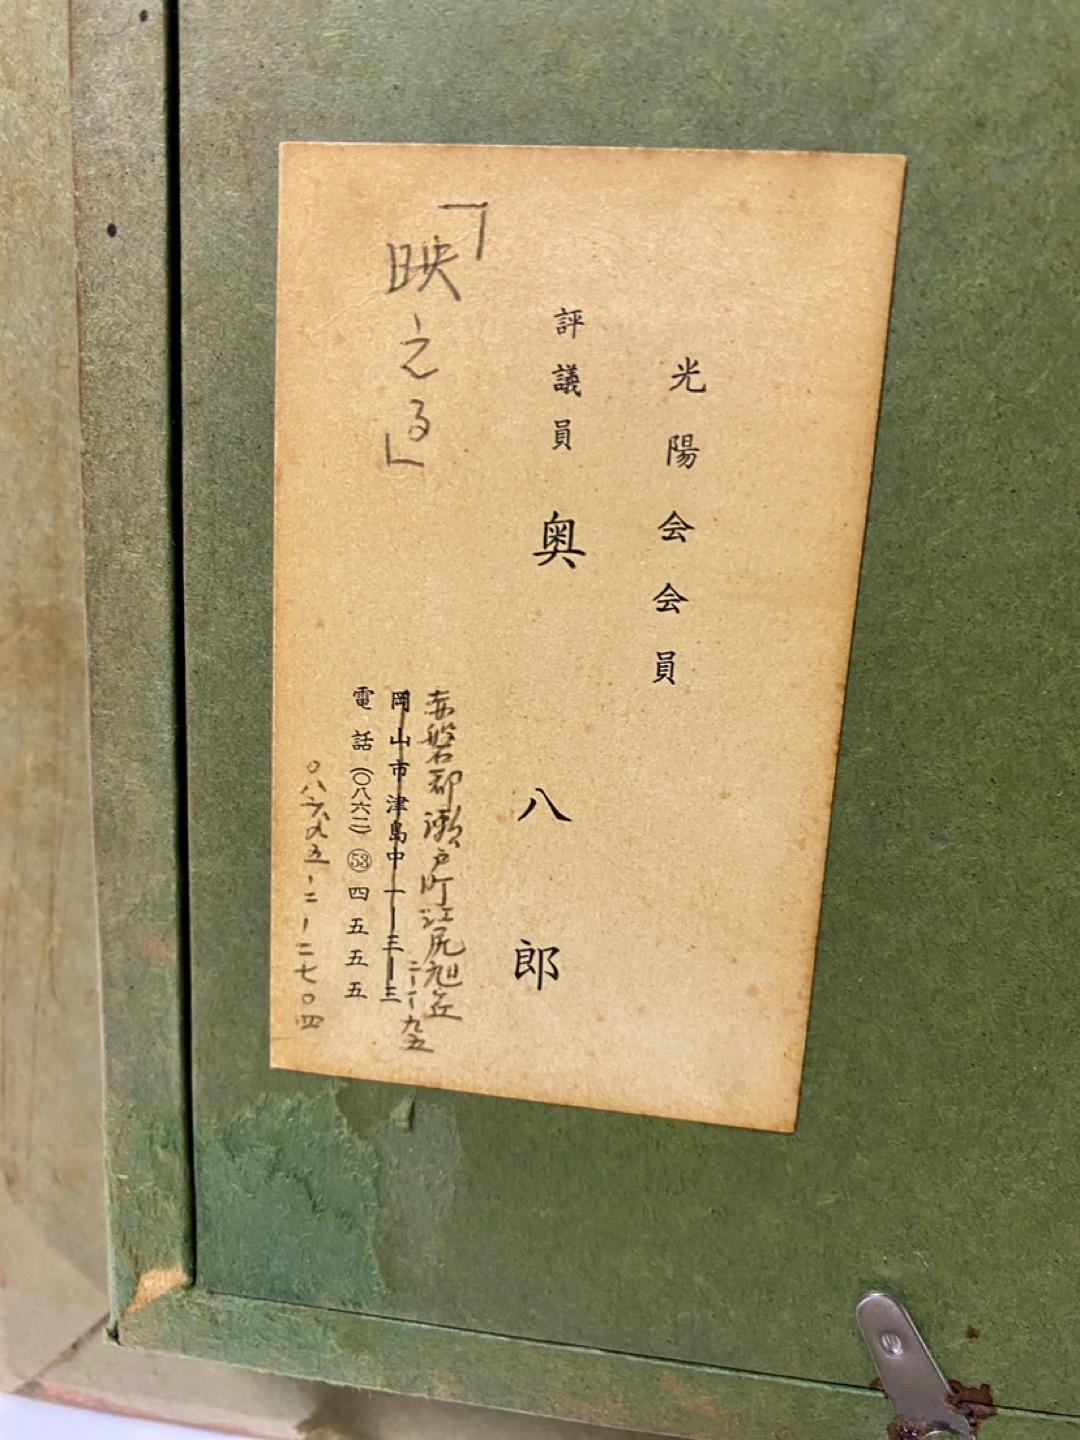 光陽会会員
評議員 奥八郎
「映える」
赤磐郡瀬戸町江尻旭ヶ丘
二ー一九五
岡山市津島中一ー三ー三
電話(〇八六二)㊼四五五五
〇八六九五ー二ー二七〇四